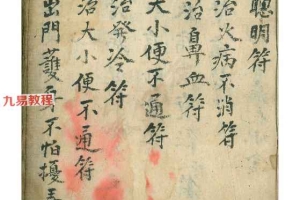 聰明符
治火病不消符
治鼻血符
大小便不通符
治發冷符
治大小便不通符
出門護身不怕擾
九易教程